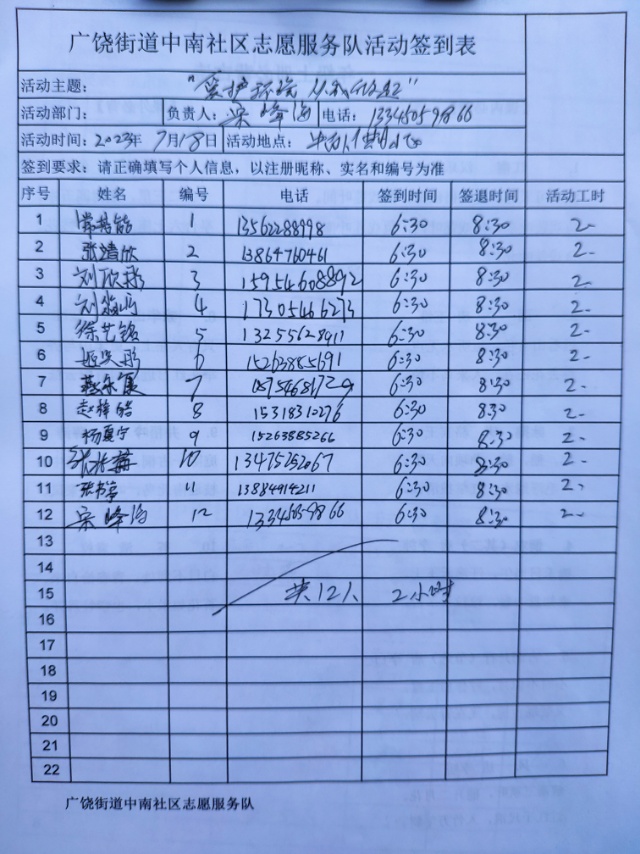 广饶街道中南社区志愿服务队活动签到表
活动主题： “爱护环境 从我做起”
活动部门： 负责人：梁峰海 电话：13345059866
活动时间：2023年7月18日 活动地点：
签到要求：请正确填写个人信息，以注册昵称、实名和编号为准
序号 姓名 编号 电话 签到时间 签退时间 活动工时
1 1 13562288998 6:30 8:30 2-
2 张靖欣 2 13864760461 6:30 8:30 2-
3 刘欣彤 3 15954608892 6:30 8:30 2-
4 4 17305466273 6:30 8:30 2-
5 徐艺铭 5 13255628911 6:30 8:30 2-
6 6 15263885691 6:30 8:30 2-
7 7 6:30 8:30 2-
8 赵梓皓 8 15318310276 6:30 8:30 2-
9 杨夏宁 9 15263885266 6:30 8:30 2-
10 10 13475252067 6:30 8:30 2-
11 11 13884914211 6:30 8:30 2-
12 梁峰海 12 13345059866 6:30 8:30 2-
13
14
15 共12人 2小时
16
17
18
19
20
21
22
广饶街道中南社区志愿服务队